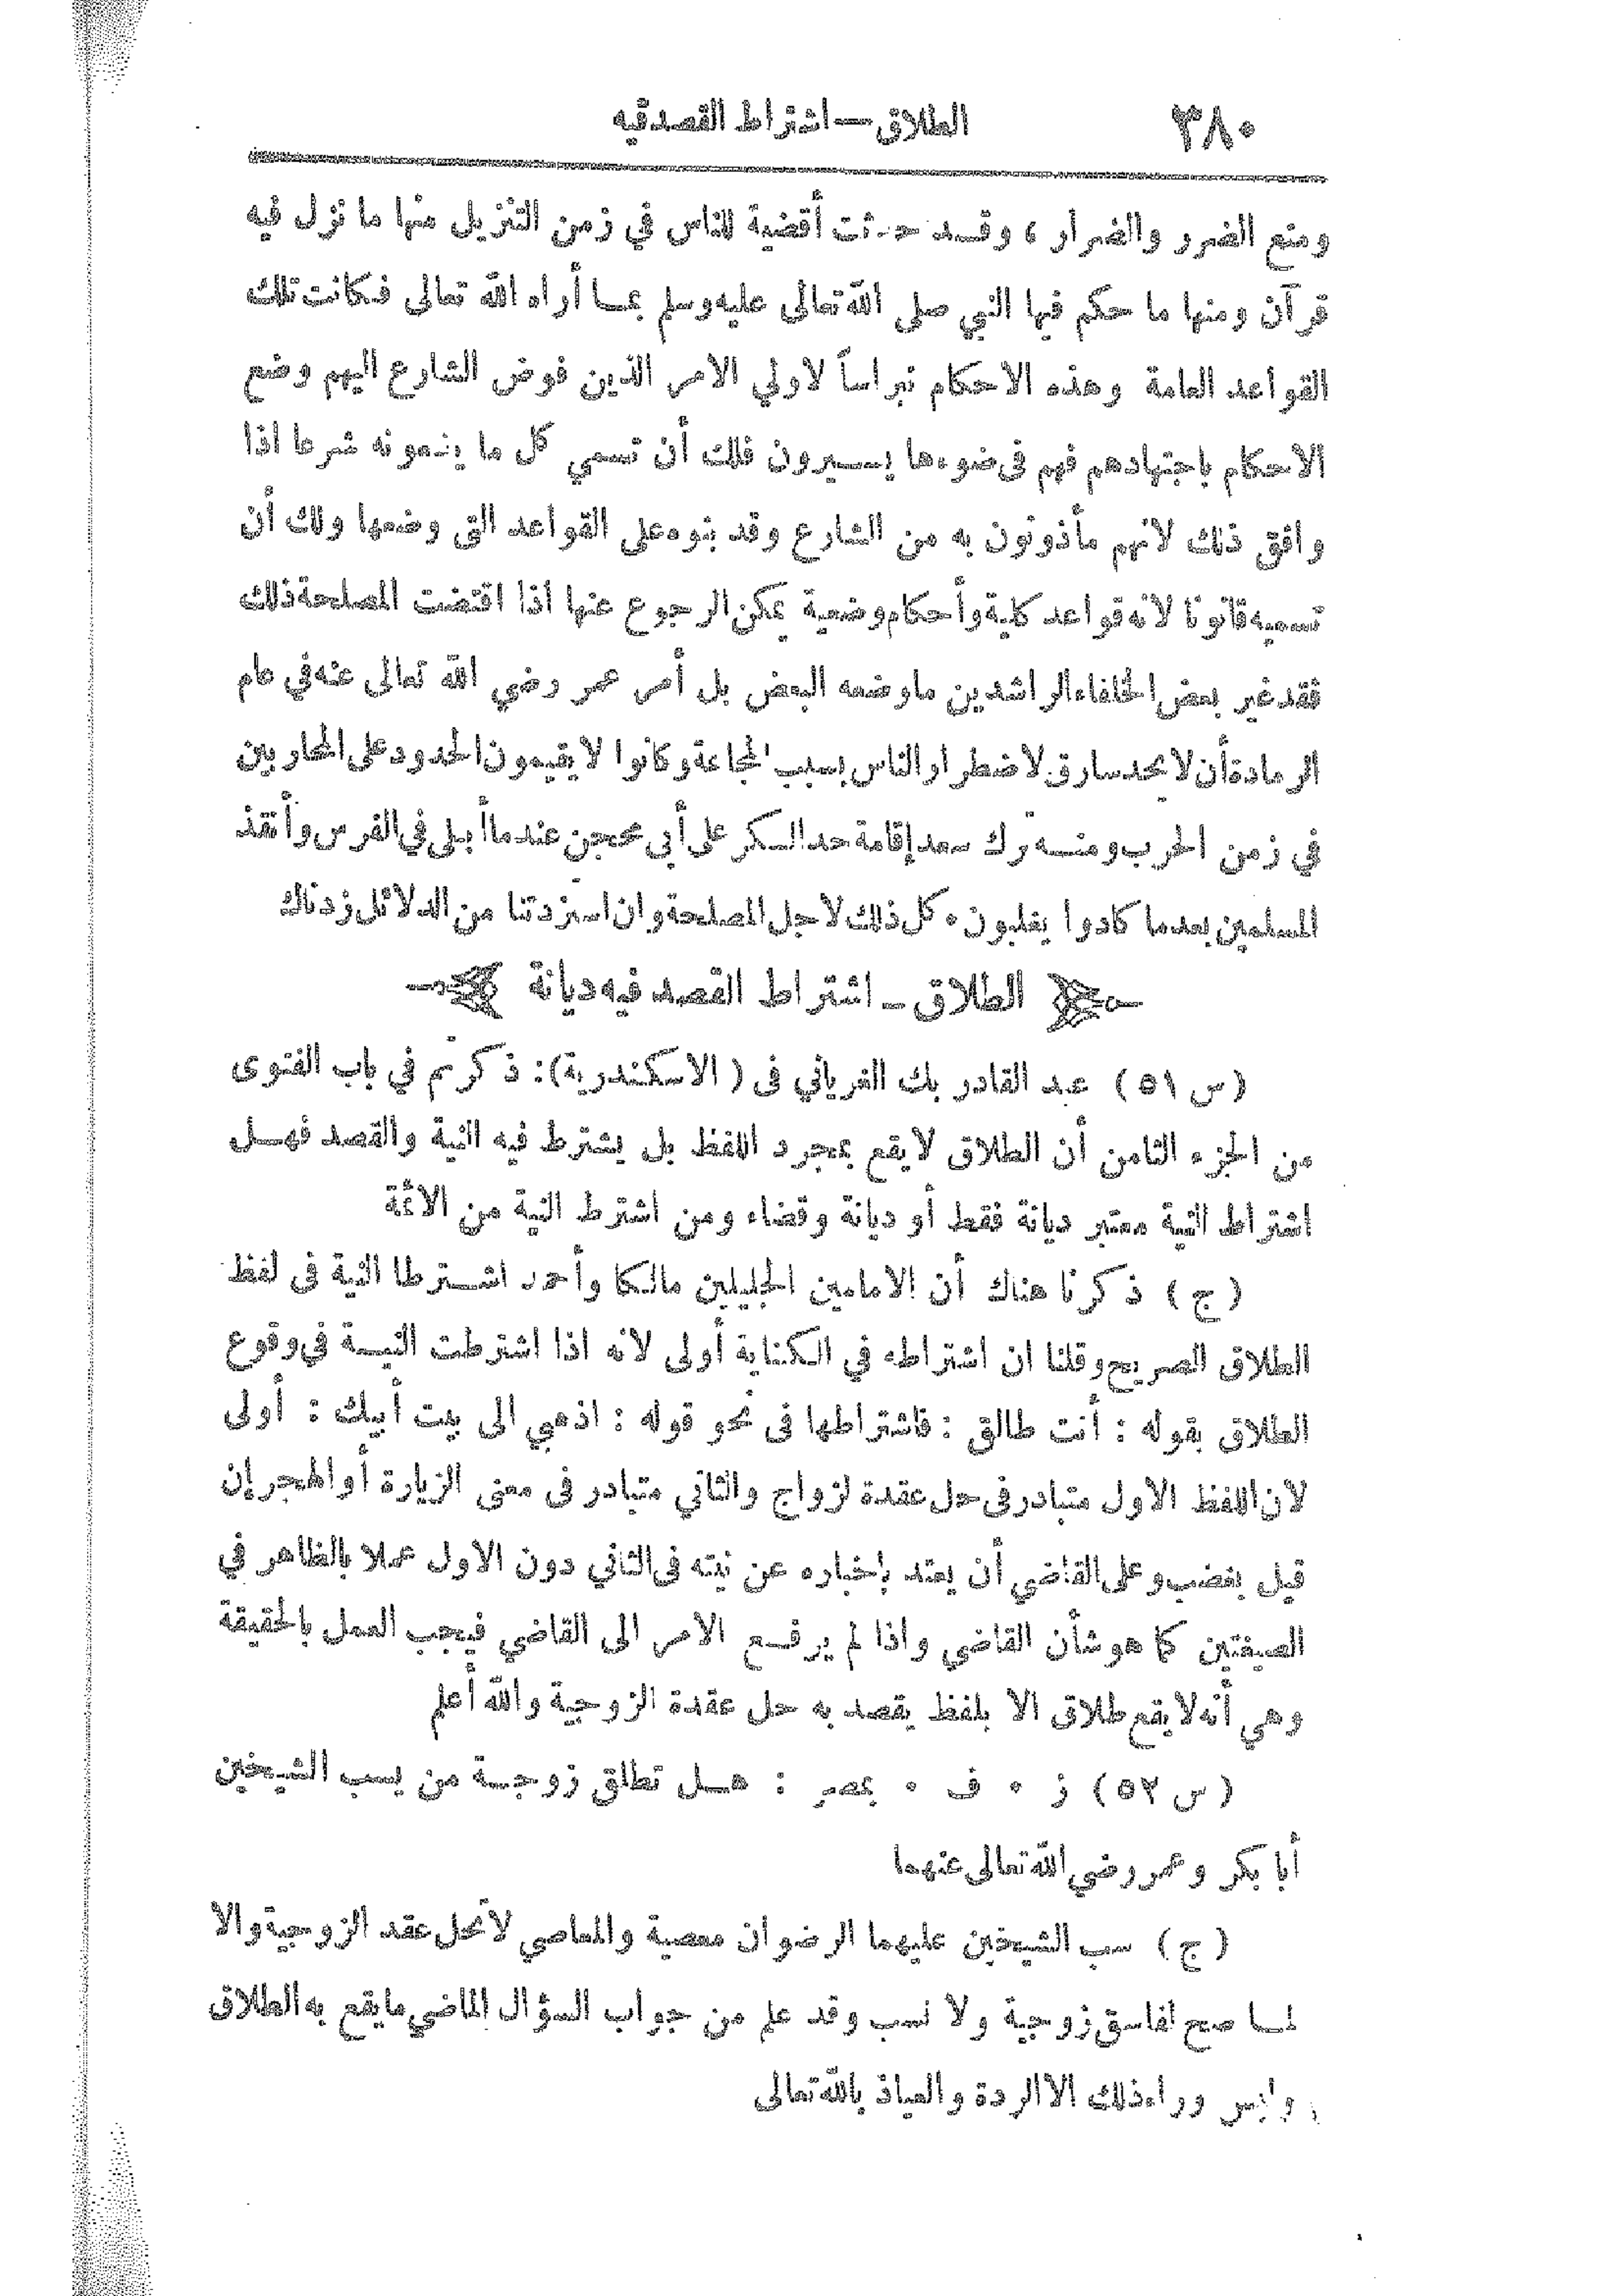 ٣٨٠
الطلاق — اشتراط القصد فيه
ومنع الضرر والضرار ، وقد حدثت أقضية للناس في زمن التنزيل منها ما نزل فيه
قرآن ومنها ما حكم فيها النبي صلى الله تعالى عليه وسلم بما أراه الله تعالى فكانت تلك
القواعد العامة وهذه الاحكام نبراساً لاولي الامر الذين فوض الشارع اليهم وضع
الاحكام باجتهادهم فهم فى ضوءها يسيرون فلك أن تسمي كل ما يضعونه شرعا اذا
وافق ذلك لانهم مأذونون به من الشارع وقد بنوه على القواعد التى وضعها ولك أن
تسميه قانونا لانه قواعد كلية وأحكام وضعية يمكن الرجوع عنها اذا اقتضت المصلحة ذلك
فقد غير بعض الخلفاء الراشدين ما وضعه البعض بل أمر عمر رضي الله تعالى عنه في عام
الرمادة أن لا يحد سارق لاضطرار الناس بسبب المجاعة وكانوا لا يقيمون الحدود على المحاربين
في زمن الحرب ومنه ترك سعد إقامة حد السكر على أبي محجن عندما أبلى في الفرس وأنقذ
المسلمين بعدما كادوا يغلبون ٠ كل ذلك لاجل المصلحة وان استزدتنا من الدلائل زدناك
الطلاق ـ اشتراط القصد فيه ديانة
( س ٥١ ) عبد القادر بك الغرياني فى ( الاسكندرية ) : ذكرتم في باب الفتوى
من الجزء الثامن أن الطلاق لا يقع بمجرد اللفظ بل يشترط فيه النية والقصد فهل
اشتراط النية معتبر ديانة فقط أو ديانة وقضاء ومن اشترط النية من الائمة
( ج ) ذكرنا هناك أن الامامين الجليلين مالكا وأحمد اشترطا النية فى لفظ
الطلاق الصريح وقلنا ان اشتراطه في الكناية أولى لانه اذا اشترطت النية في وقوع
الطلاق بقوله : أنت طالق : فاشتراطها فى نحو قوله : اذهبي الى بيت أبيك : أولى
لان اللفظ الاول متبادر فى حل عقدة لزواج والثاني متبادر فى معنى الزيارة أو الهجر إن
قيل بغضب وعلى القاضي أن يعتد بإخباره عن نيته فى الثاني دون الاول عملا بالظاهر في
الصيغتين كما هو شأن القاضي واذا لم يرفع الامر الى القاضي فيجب العمل بالحقيقة
وهي أنه لا يقع طلاق الا بلفظ يقصد به حل عقدة الزوجية والله أعلم
( س ٥٢ ) ز ٠ ف ٠ بمصر : هل تطلق زوجة من يسب الشيخين
أبا بكر وعمر رضي الله تعالى عنهما
( ج ) سب الشيخين عليهما الرضوان معصية والمعاصي لا تحل عقد الزوجية والا
لما صح لفاسق زوجية ولا نسب وقد علم من جواب السؤال الماضي ما يقع به الطلاق
وليس وراء ذلك الا الردة والعياذ بالله تعالى